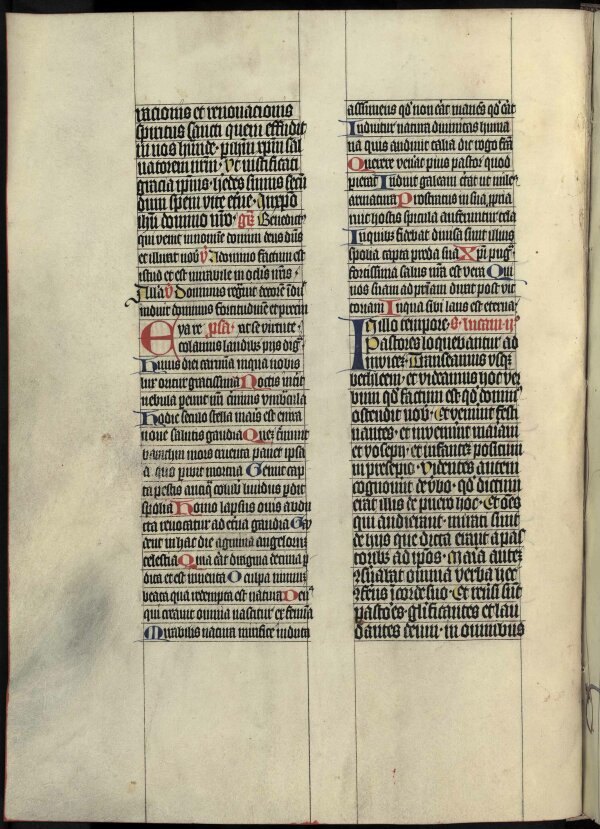 racionis et renovacionis
spiritus sancti quem effudit
in nos hūnde · p ihm xpm sal
vatorem nrm · Vt iustificati
gracia ipius · hedes simus secū
dum spem vite etne · In xpo
ihū domino nro · gr Benedict⁹
qui venit in nomine domini deus dn̄s
et illuxit nob v A domino factum est
istud et est mirabile in oclis nrīs ·
Alla v Dominus regnuit decorē īdu
induit dominus fortitudinē et precin
Eya re psa · nr̄ se virtute ·
colamus laudibus pijs dig
Huius diei carmina in qua nobis
lux oritur gratissima Noctis interit
nebula pereunt nrī crīminis umbracula
Hodie seculo stella maris est enixa
nove salutis gaudia Que tremunt
barathra mors cruenta pavet ipsa
a quo peribit mortua Gemit cap
ta pestis antiqua coluber lividus pdit
spolia Homo lapsus ovis abdu
cta revocatur ad eterna gaudia Gau
dent in hac die agmina angelorum
celestia Quia erat dragma decima p
dita et est inventa O culpa nimium
beata qua redempta est natura Deus
qui creavit omnia nascitur ex femina
Mirabilis natura mirifice induta
assumens qd non erat manens qd erat
Induitur natura divinitas huma
na quis audivit talia dic rogo facta
Querere venerat pius pastor quod
perierat Induit galeam certat ut miles
armatura Prostratus in sua propria
ruit hostis spicula auferuntur tela
In quibus fidebat divisa sunt illius
spolia capta preda sua Xpi pugna
fortissima salus nrā est vera Qui
nos suam ad priam duxit post vic
toriam In qua sibi laus est eterna
In illo tempore · S · lucam · ij ·
Pastores loquebantur ad
invicez · Transeamus usq
bethleem · et videamus hoc ver
bum qd factum est · qd domin⁹
ostendit nob · Et venerunt festi
nantes · et invenerunt mariam
et yoseph · et infantem positum
in presepio · Videntes autem
cognoverunt de vbo · qd dictum
erat illis de puero hoc · Et oēs
qui audierant · mirati sunt
de hiis que dicta erant a pas
toribus ad ipos · Maria autez
9servabat omnia verba hec
9ferens i corde suo · Et reusi sunt
pastoēs · glificantes et lau
dantes deum · in omnibus